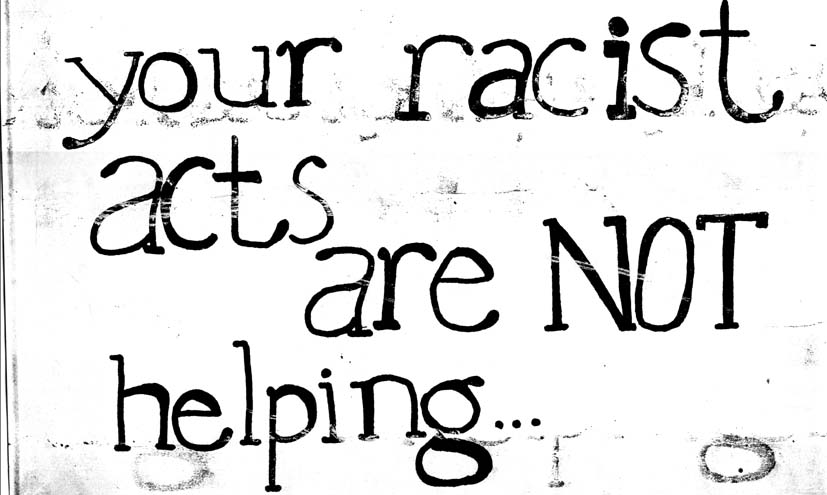 your racist
acts
are NOT
helping...